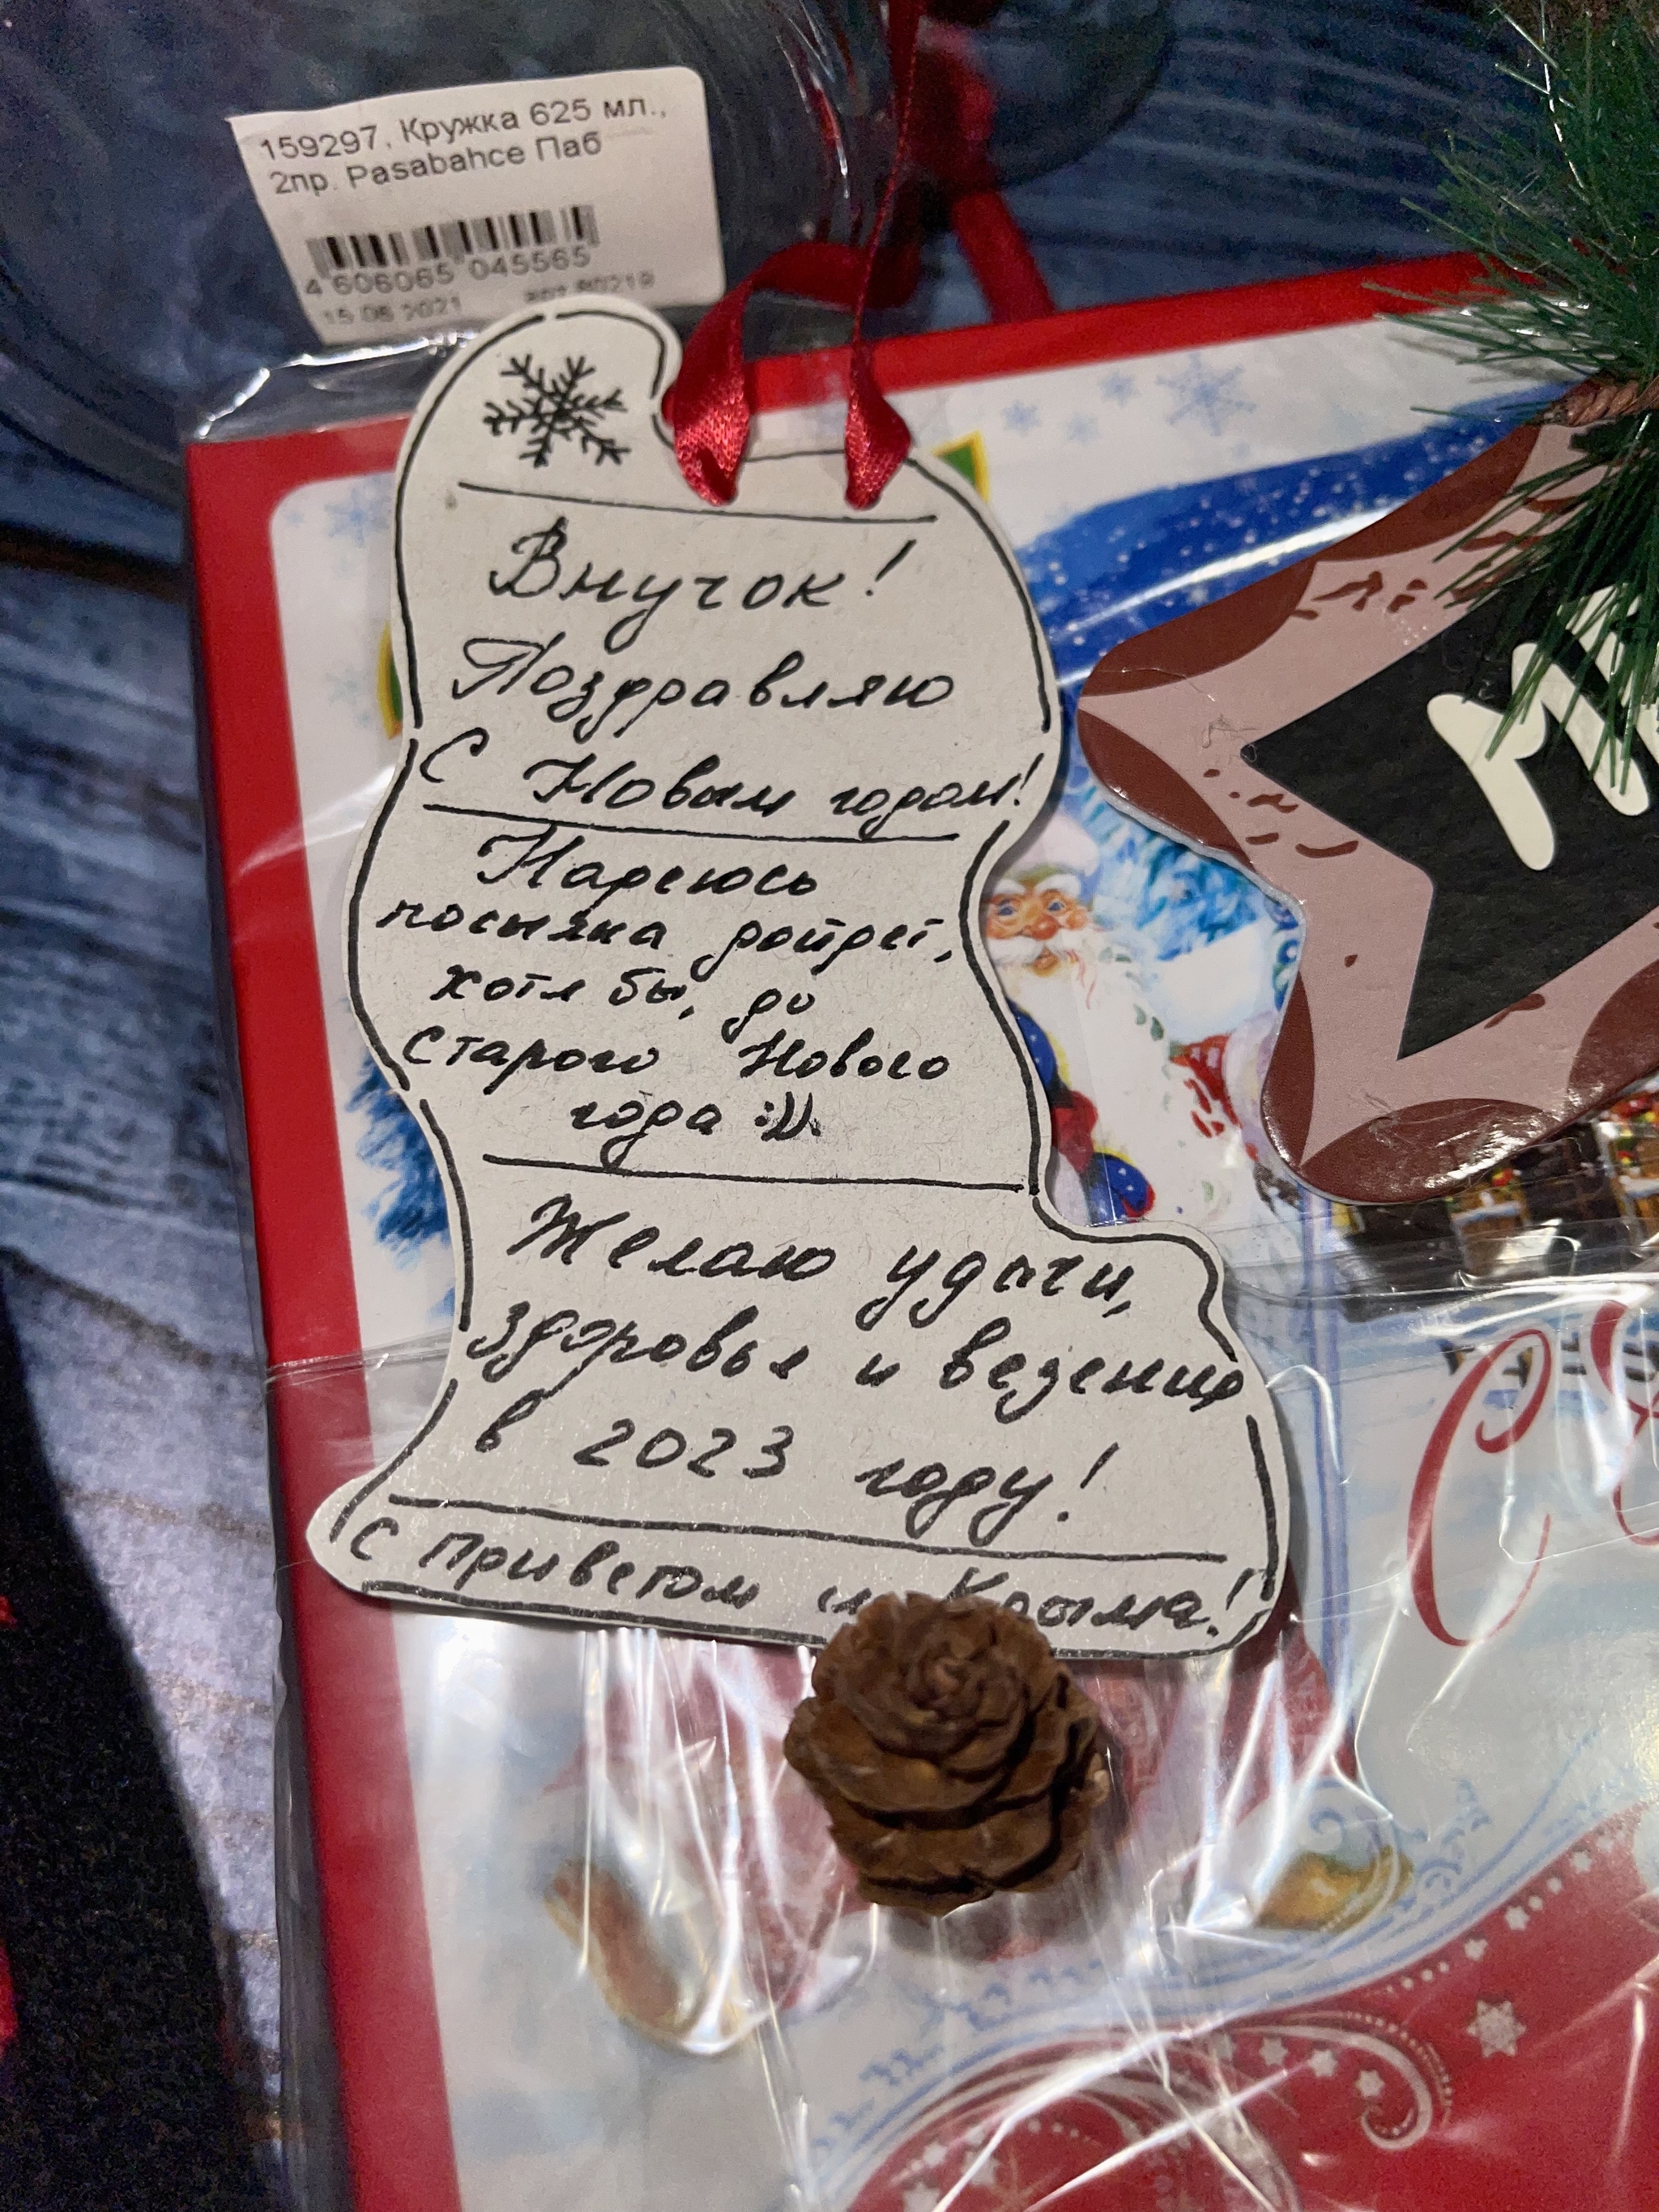 159297, Кружка 625 мл.,
2пр. Pasabahce Паб
4 606065 045565
15.06.2021
Внучок!
Поздравляю
С Новым годом!
Надеюсь
посылка дойдет,
хотя бы, до
Старого Нового
года :)).
Желаю удачи,
здоровья и везения
в 2023 году!
С приветом из Крыма!
С